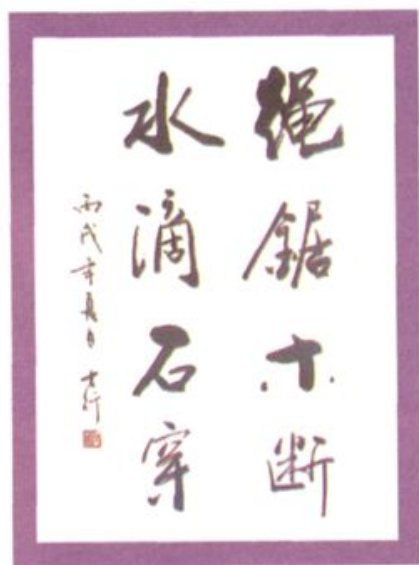 绳鋸木断
水滴石穿
丙戌年夏月 士行